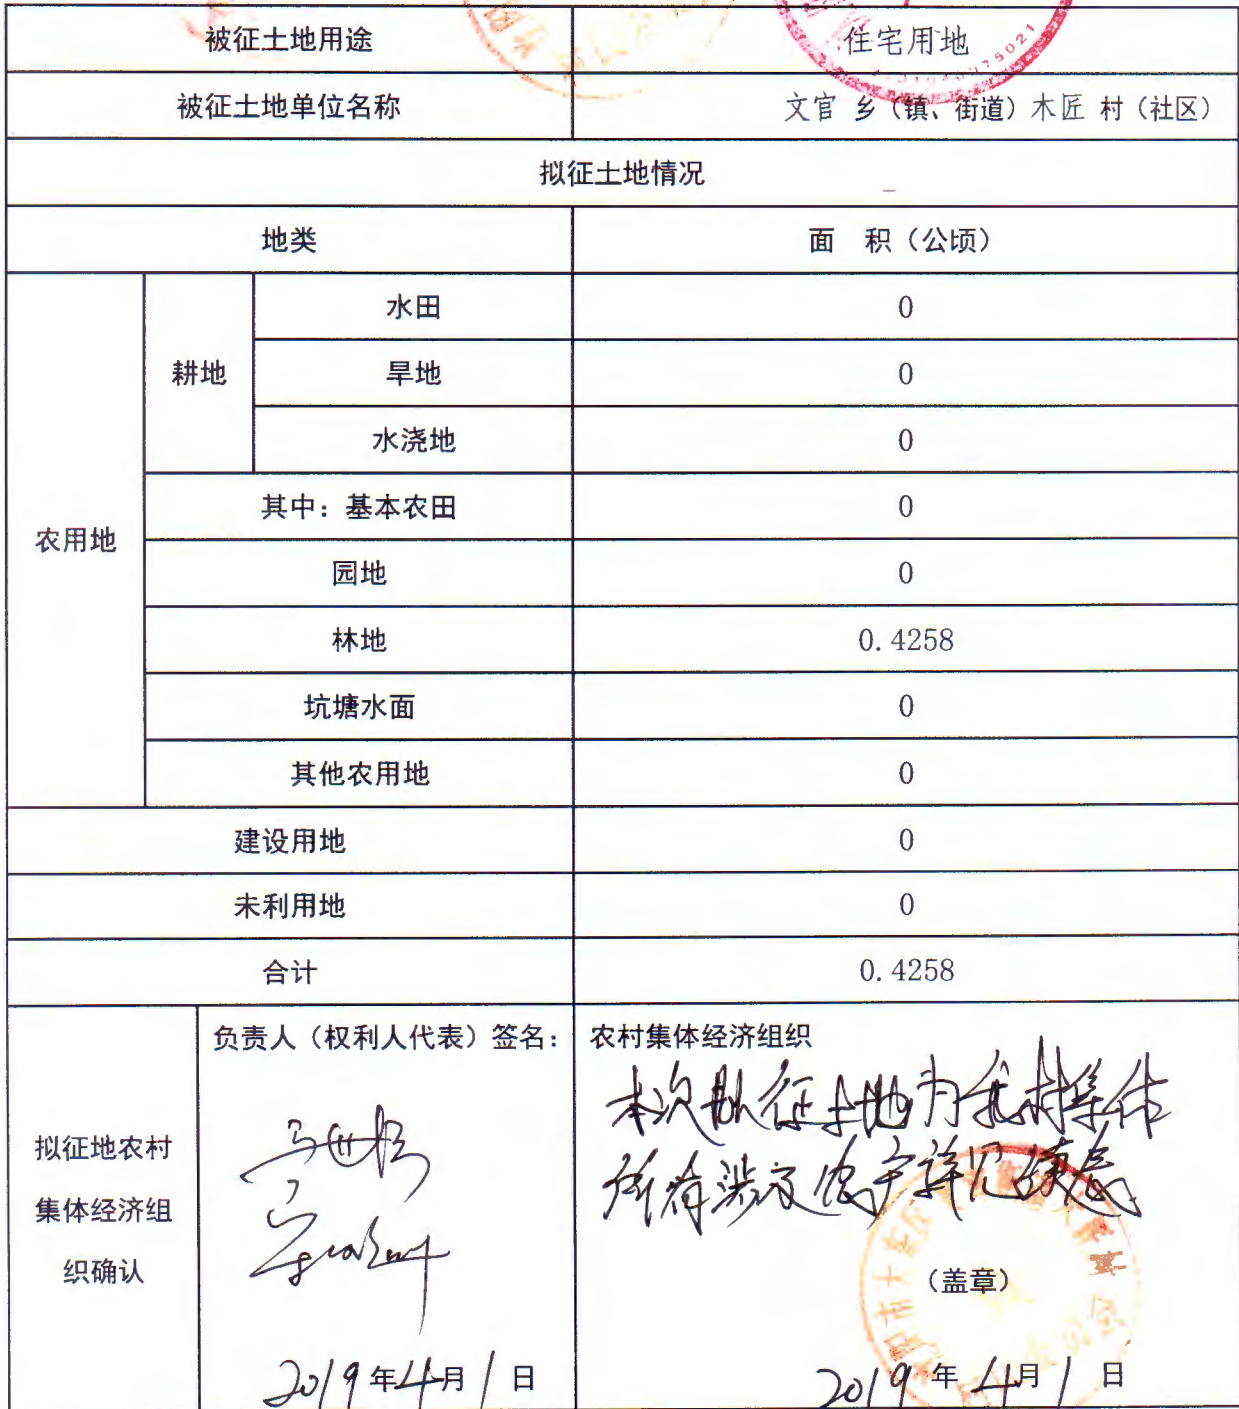 被征土地用途 住宅用地
被征土地单位名称 文官 乡（镇、街道）木匠 村（社区）
拟征土地情况
地类 面 积（公顷）
农用地
耕地
水田 0
旱地 0
水浇地 0
其中：基本农田 0
园地 0
林地 0.4258
坑塘水面 0
其他农用地 0
建设用地 0
未利用地 0
合计 0.4258
拟征地农村
集体经济组
织确认
负责人（权利人代表）签名：
2019年4月1日
农村集体经济组织
本次拟征土地为我村集体
所有涉及农户详见续表
（盖章）
2019年4月1日